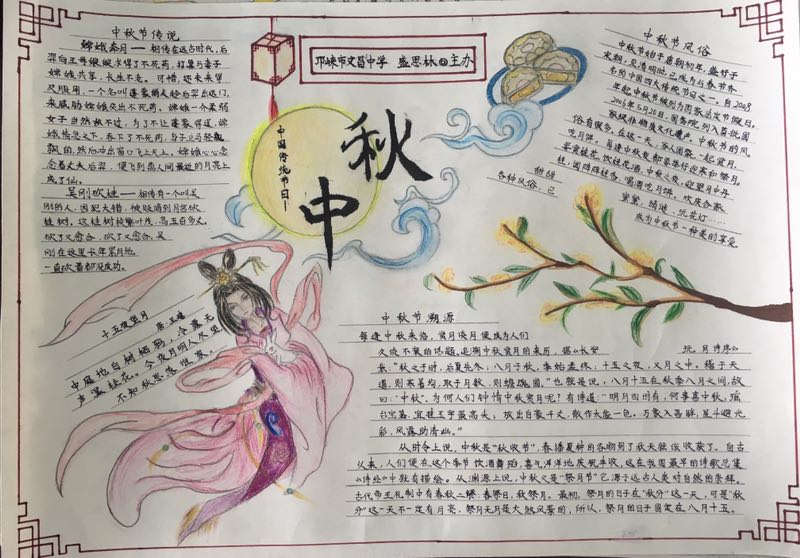 中秋节传说
嫦娥奔月——相传在远古时代,后
羿向王母娘娘求得了不死药,打算与妻
嫦娥共享,长生不老。可惜,还未来得
及服用,一个名叫蓬蒙的人趁后羿出远门,
来威胁嫦娥交出不死药,嫦娥一个柔弱
女子当然敌不过,为了不让蓬蒙得逞,嫦
娥情急之下,吞下了不死药,身子立马轻飘
飘的,然后冲出窗口飞上天上,嫦娥心心念
念着丈夫后羿,便飞到离人间最近的月亮上
成了仙。
吴刚砍桂——相传有一个叫吴
刚的人,因犯大错,被贬谪到月宫砍
桂树,这桂树枝繁叶茂,高五百多丈,
砍了又愈合,砍了又愈合,吴
刚在这里长年累月地
一直砍着都没成功。
邛崃市文昌中学 盛思妹 主办
中国传统节日
中秋
中秋节风俗
中秋节始于唐朝初年,盛行于
宋朝,至清明时,已成为与春节齐
名的中国四大传统节日之一。自2008
年起中秋节被列为国家法定节假日。
2006年5月20日,国务院列入首批国
家级非物质文化遗产。中秋节的风
俗有很多,在这一天,家人团聚,一起赏月,
吃月饼。每逢中秋夜都要举行迎寒和祭月。
赏桂花,饮桂花酒,中秋之夜,仰望月中丹
桂,闻阵阵桂香,喝酒吃月饼,欢庆合家
甜甜蜜蜜,猜谜,玩花灯……
各种风俗,已成为中秋节一种美的享受
十五夜望月
唐·王建
中庭地白树栖鸦,冷露无
声湿桂花。今夜月明人尽望,
不知秋思落谁家。
中秋节溯源
每逢中秋来临,赏月谈月便成为人们
久谈不衰的话题,追溯中秋赏月的来历,据《长安玩月诗序》
载:"秋之于时,后夏先冬;八月于秋,季始孟终;十五之夜,又月之中。稽于天
道,则寒暑均,取于月数,则蟾魄圆。"也就是说,八月十五在秋季八月之间,故
曰:"中秋"。为何人们钟情中秋赏月呢?有诗道:"明月四时有,何事喜中秋,瑶
台宝鉴,宜挂玉宇最高头;放出白豪千丈,散作太虚一色。万象入吾眸,星斗避光
彩,风露助清幽。"
从时令上说,中秋是"秋收节",春播夏种的谷物到了秋天就该收获了。自古
以来,人们便在这个季节饮酒舞蹈,喜气洋洋地庆祝丰收,这在我国最早的诗歌总集
《诗经》中就有描绘。从渊源上说,中秋又是"祭月节"它源于远古人类对自然的崇拜。
古代帝王礼制中有春秋二祭:春祭日,秋祭月。最初,祭月的日子在"秋分"这一天,可是"秋
分"这一天不一定有月亮,祭月无月是大煞风景的,所以,祭月的日子固定在八月十五。